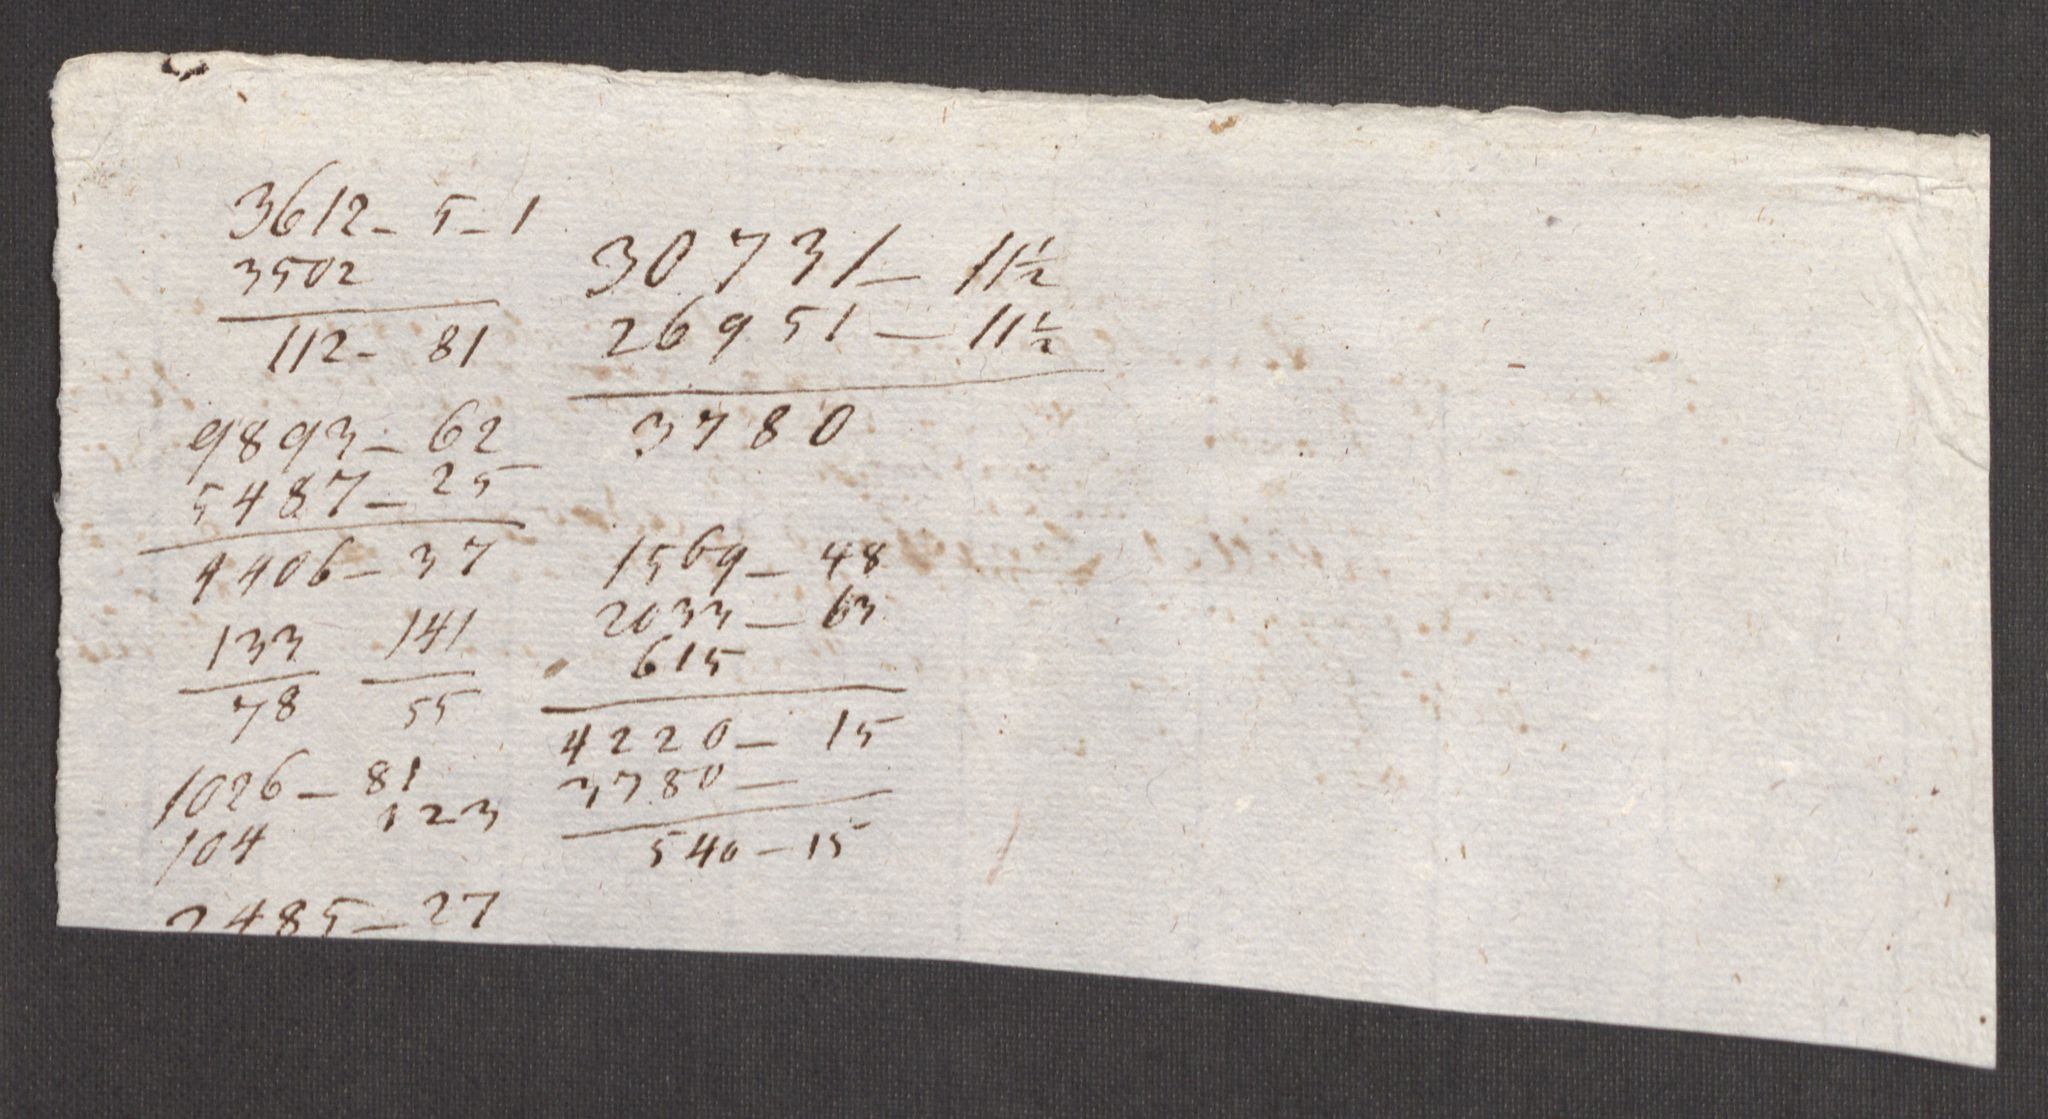 3612 - 5 - 1
3502
112 - 81
9893 - 62
5487 - 25
4406 - 37
133 141
78 55
1026 - 81
104 123
2485 - 27
30731 - 11½
26951 - 11½
3780
1569 - 48
2033 - 63
615
4220 - 15
3780 -
540 - 15